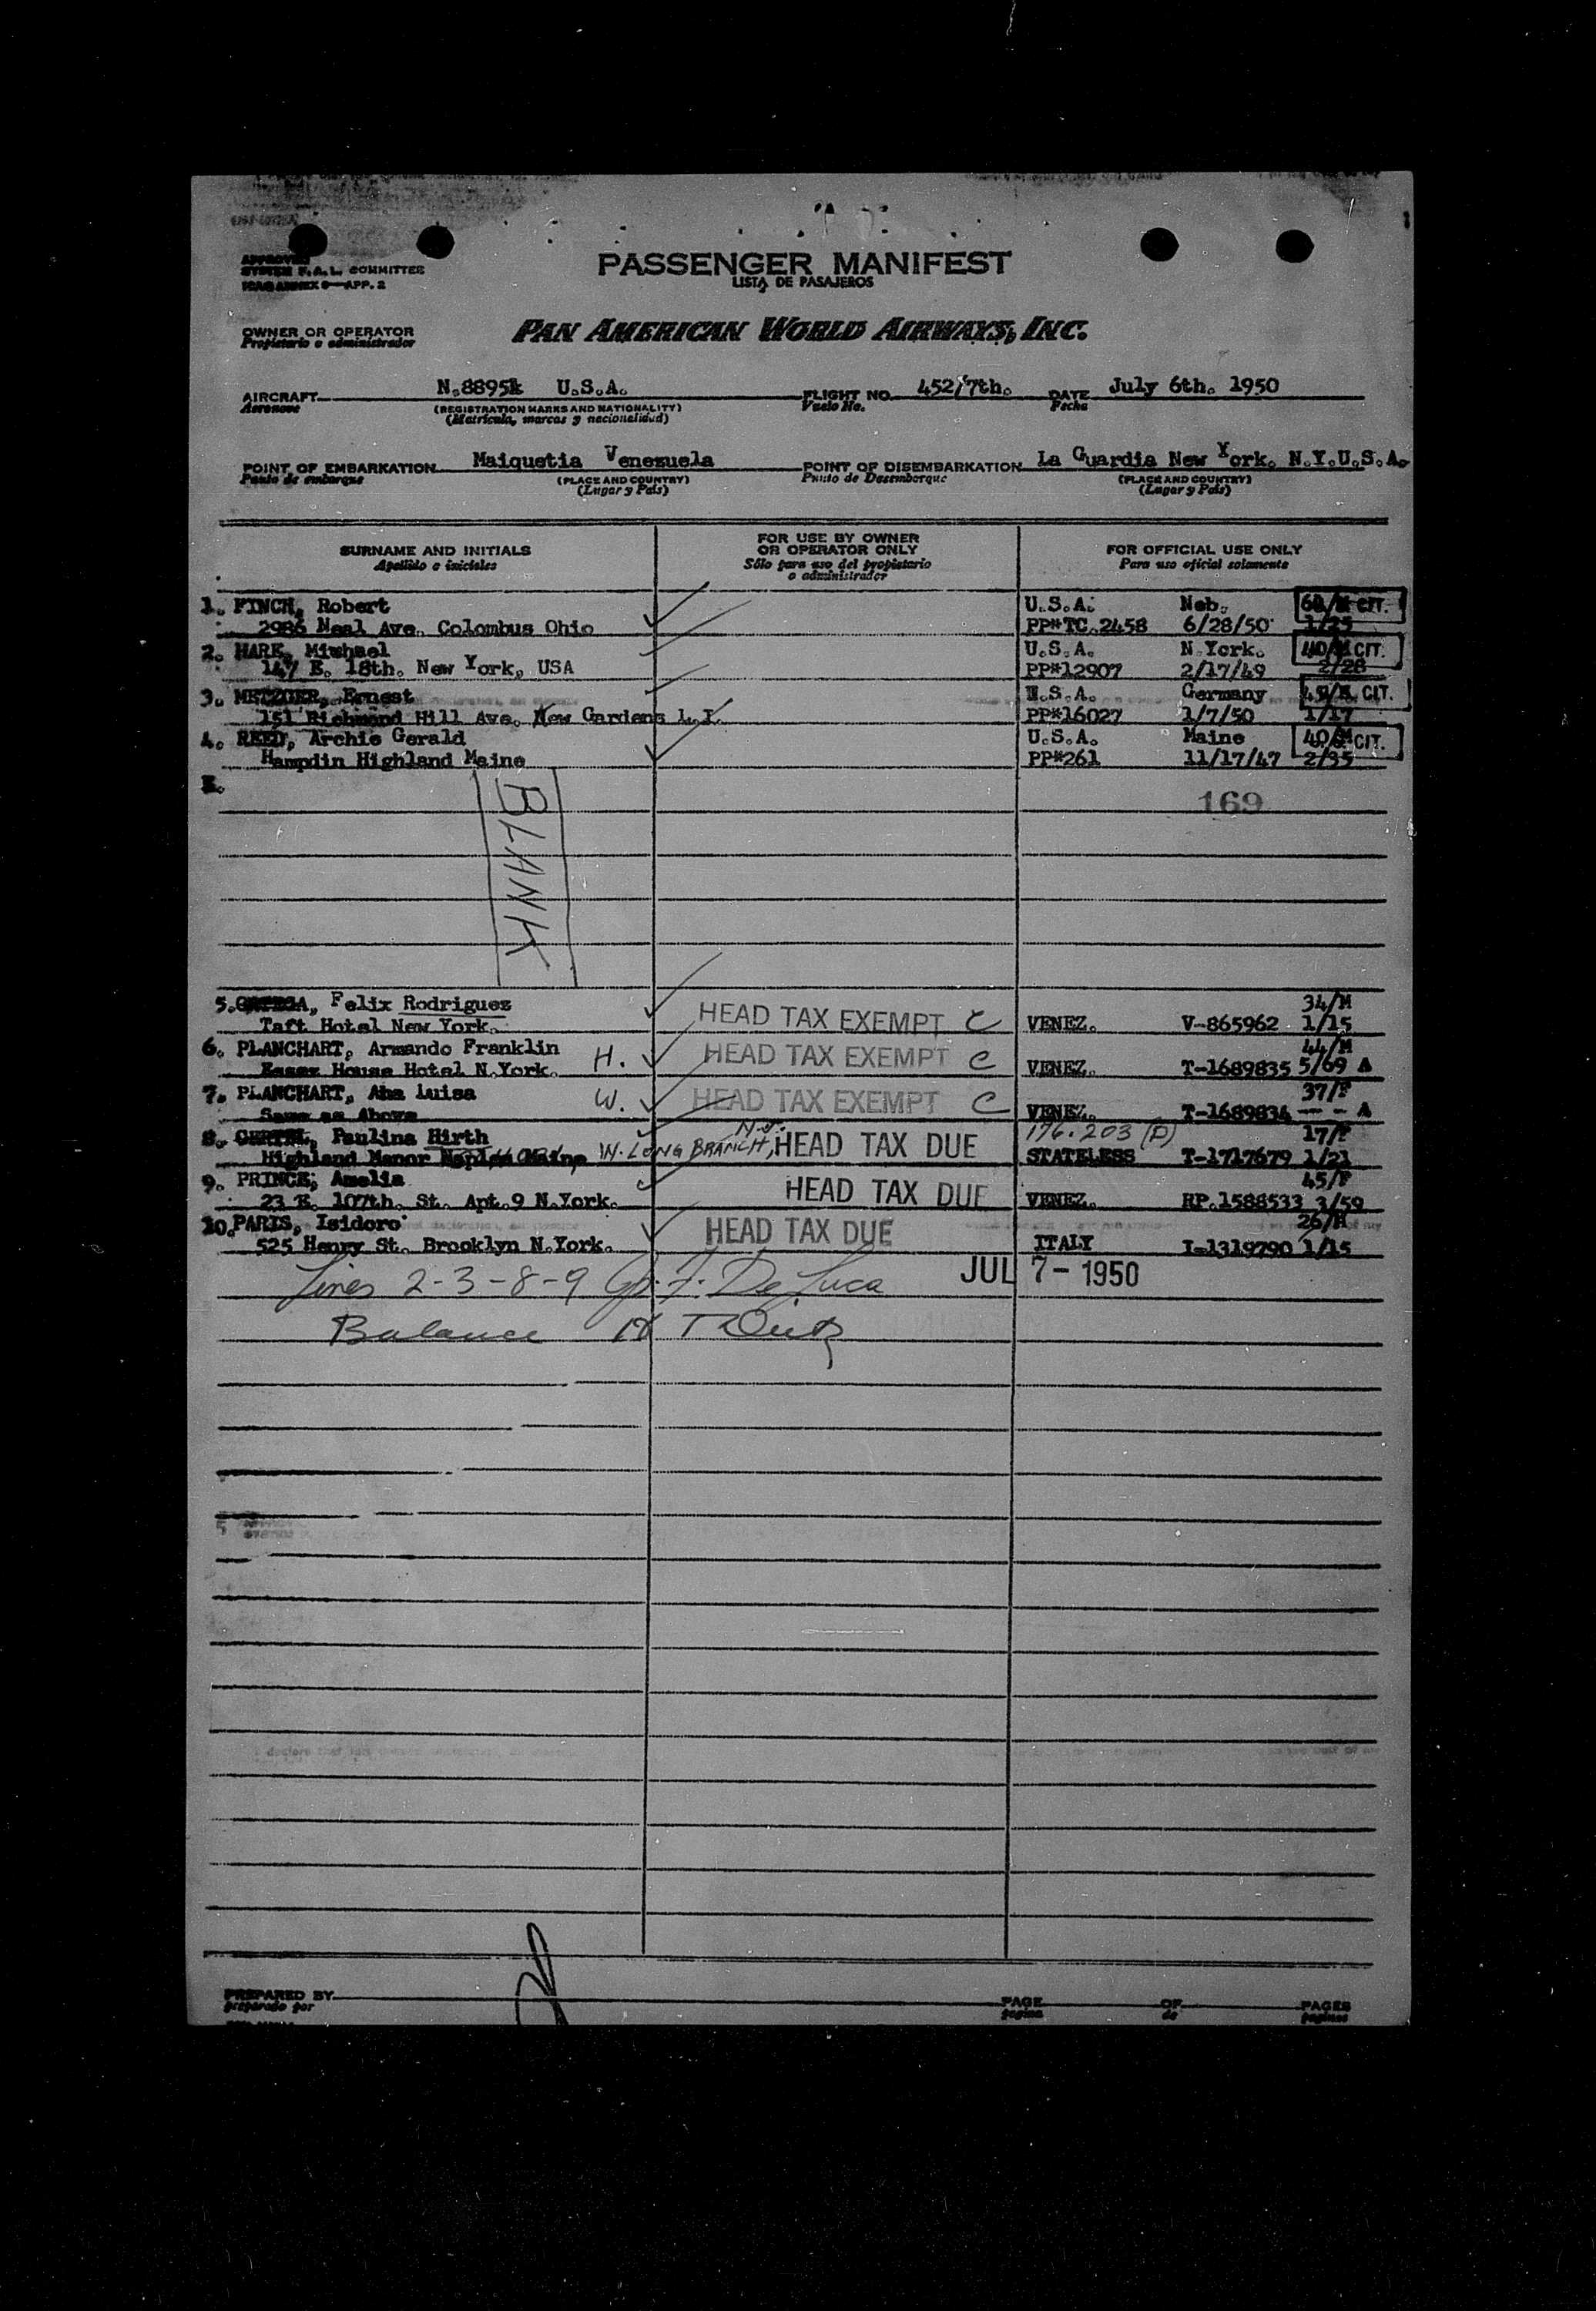 APPROVED
SYSTEM F.A.L. COMMITTEE
ICAO ANNEX 9—APP. 2
PASSENGER MANIFEST
LISTA DE PASAJEROS
OWNER OR OPERATOR
Propietario o administrador
PAN AMERICAN WORLD AIRWAYS, INC.
AIRCRAFT N.8895k U.S.A. FLIGHT NO. 452/7th. DATE July 6th. 1950
Aeronave (REGISTRATION MARKS AND NATIONALITY) Vuelo No. Fecha
(Matricula, marcas y nacionalidad)
POINT OF EMBARKATION Maiquetia Venezuela POINT OF DISEMBARKATION La Guardia New York. N.Y.U.S.A.
Punto de embarque (PLACE AND COUNTRY) Punto de Desembarque (PLACE AND COUNTRY)
(Lugar y País) (Lugar y País)
SURNAME AND INITIALS FOR USE BY OWNER OR OPERATOR ONLY FOR OFFICIAL USE ONLY
Apellido e iniciales Sólo para uso del propietario o administrador Para uso oficial solamente
1. FINCH, Robert U.S.A. Neb. CIT.
2986 Neal Ave. Colombus Ohio PP#TC.2458 6/28/50 1/25
2. HARK, Michael U.S.A. N.York. 40/M CIT.
147 E. 18th. New York, USA PP#12907 2/17/49 2/28
3. METZGER, Ernest U.S.A. Germany CIT.
151 Richmond Hill Ave. New Gardens L.I. PP#16027 1/7/50 1/17
4. REED, Archie Gerald U.S.A. Maine 40/M CIT.
Hampdin Highland Maine PP#261 11/17/47 2/35
BLANK
169
5. ORTEGA, Felix Rodriguez 34/M
Taft Hotel New York. HEAD TAX EXEMPT C VENEZ. V-865962 1/15
6. PLANCHART, Armando Franklin H. 44/M
Essex House Hotel N.York. HEAD TAX EXEMPT C VENEZ. T-1689835 5/69 A
7. PLANCHART, Ana Luisa W. 37/F
Same as Above HEAD TAX EXEMPT C VENEZ. T-1689834 -- - A
8. Paulina Hirth N.J. 176.203 (D) 17/F
Highland Manor Naples Maine W. LONG BRANCH, HEAD TAX DUE STATELESS T-1717679 1/21
9. PRINCE, Amelia 45/F
23 E. 107th. St. Apt.9 N.York. HEAD TAX DUE VENEZ. RP.1588533 3/59
10. PARIS, Isidoro 26/M
525 Henry St. Brooklyn N.York. HEAD TAX DUE ITALY I-1319790 1/15
Lines 2-3-8-9 De Luca JUL 7-1950
Balance
PREPARED BY PAGE OF PAGES
preparado por pagina de paginas